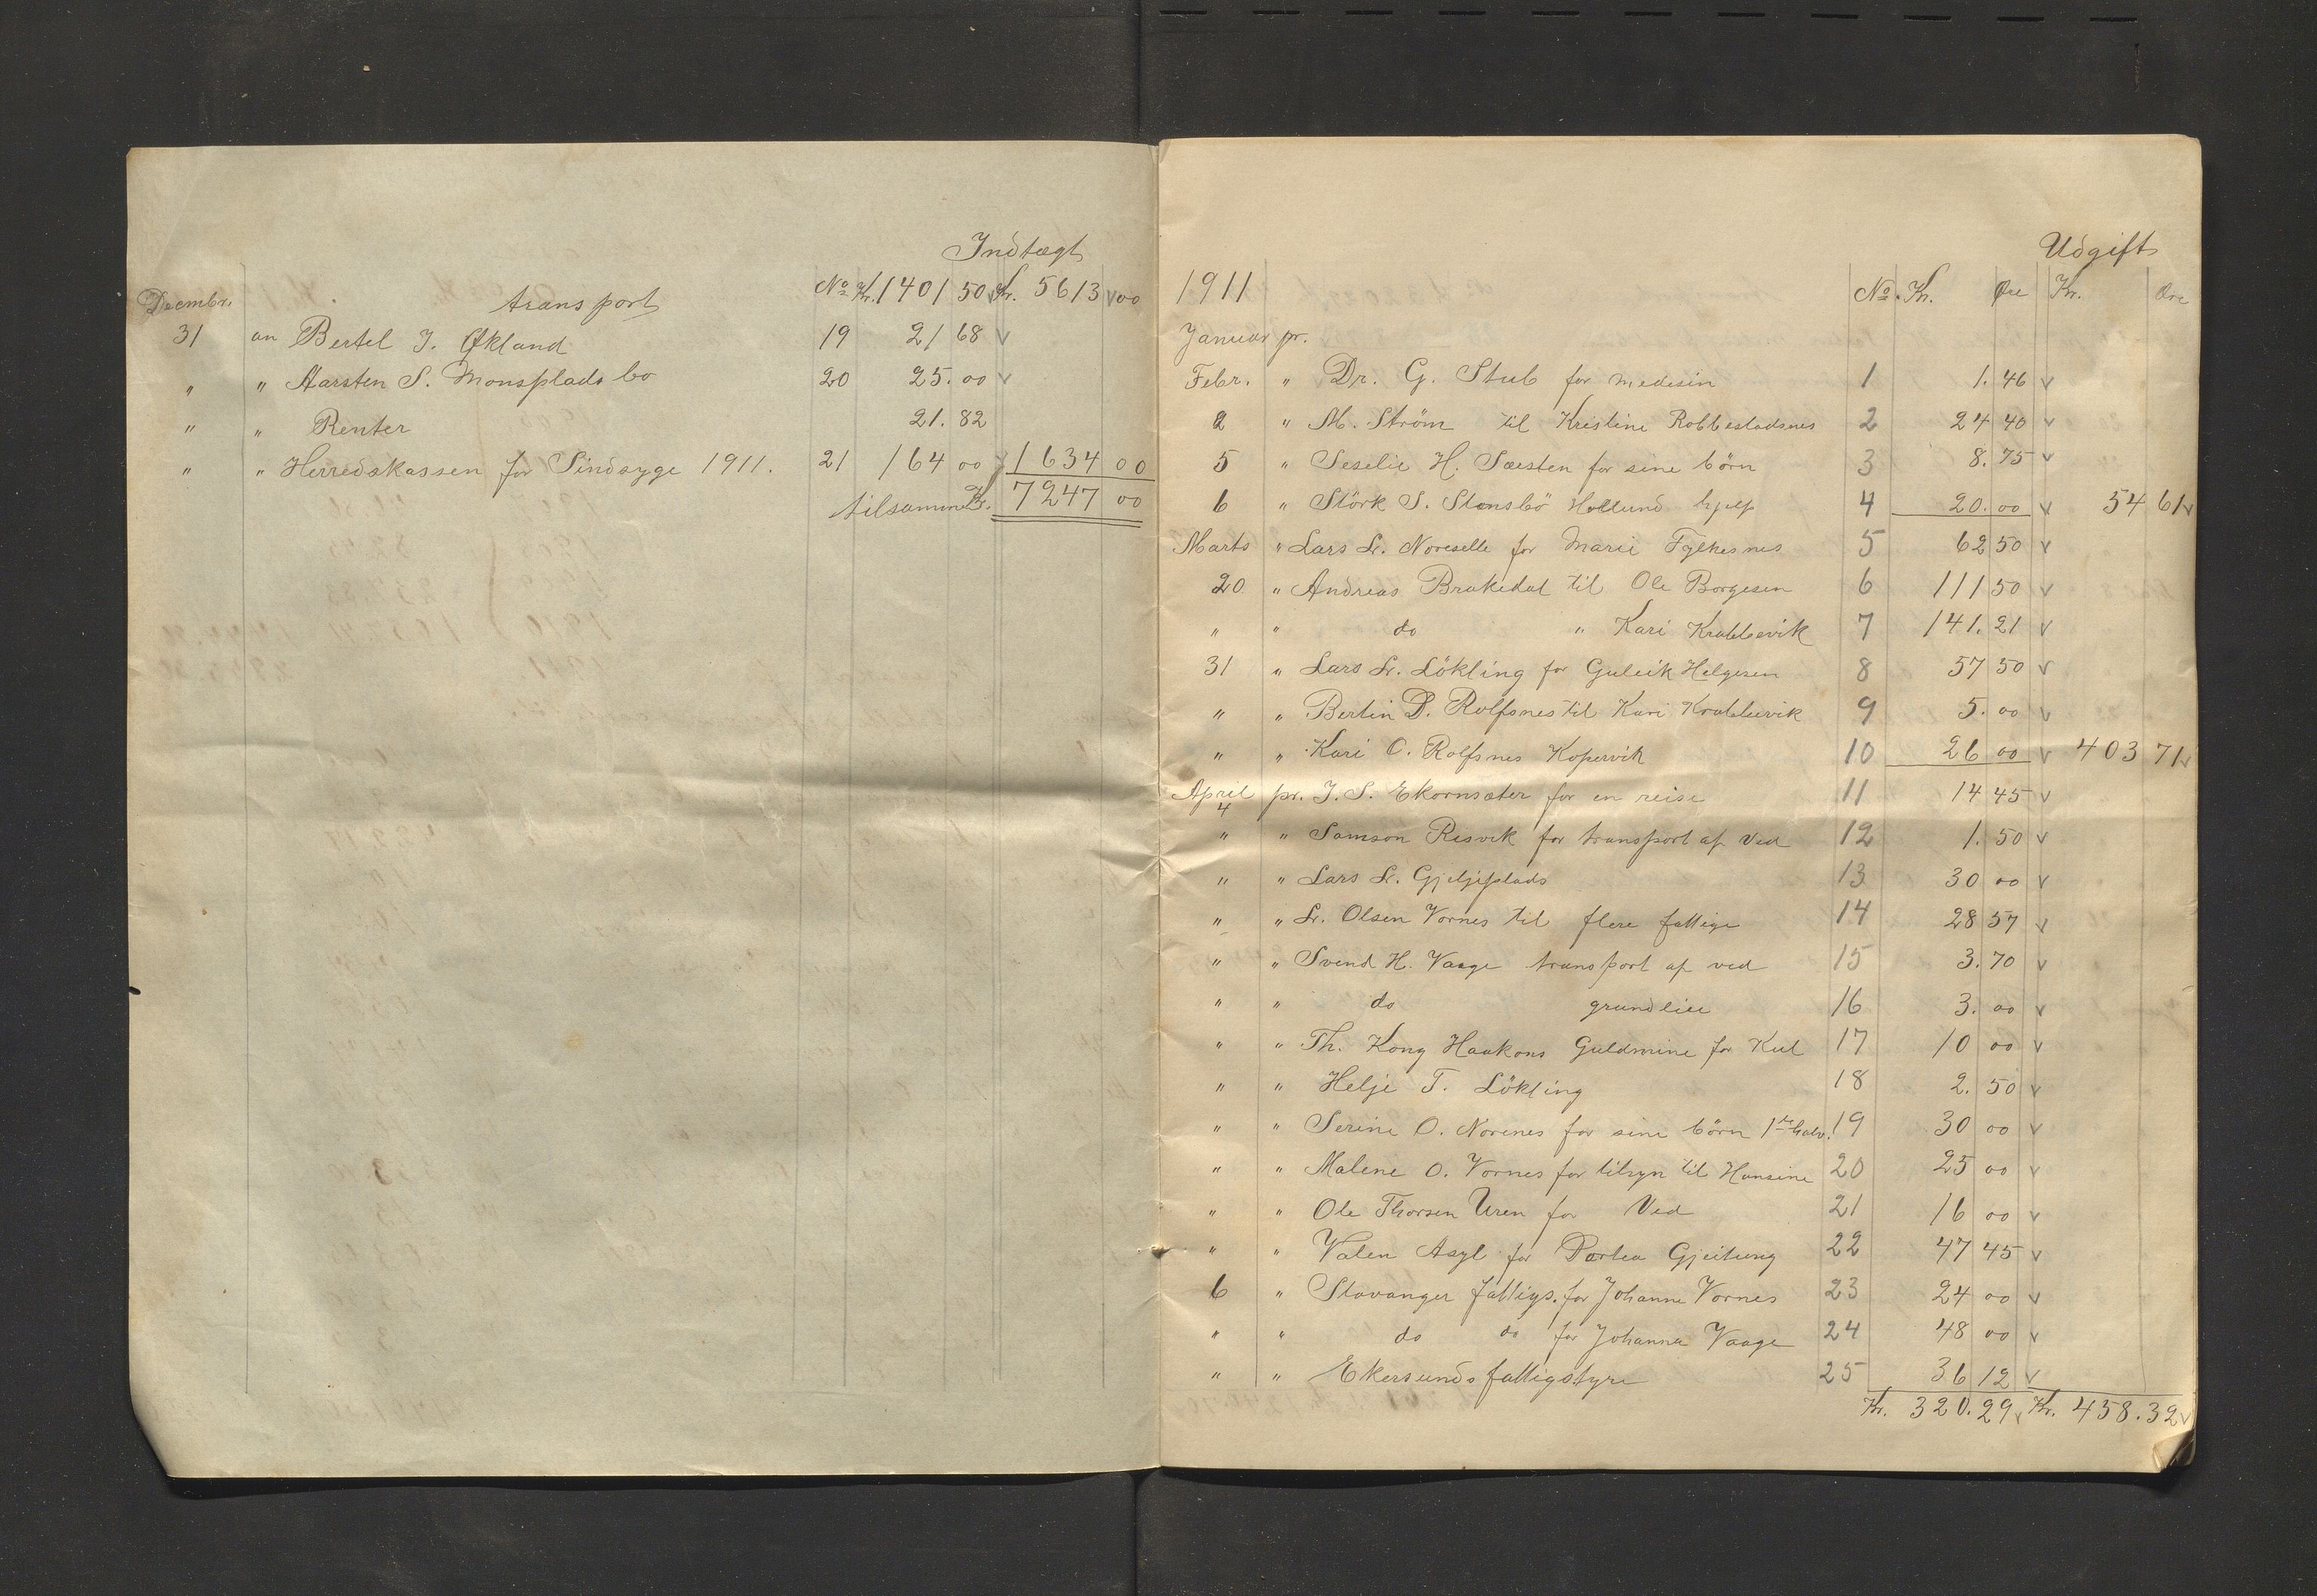 Indtægt
Decembr. transport No Kr. 1401 50 v Kr. 5613 v 00
31 an Bertel J. Økland 19 21 68 v
" " Aarsten S. Monsplads bo 20 25. 00 v
" " Renter 21. 82
" " Herredskassen for Sindsyge 1911. 21 164 00 v 1634 00
tilsammen Kr. 7247 00
Udgift
1911 No. Kr. Øre Kr. Øre
Januar pr.
Febr. " Dr. G. Stub for medesin 1 1. 46 v
2 " M. Ström til Kristine Robbestadsnes 2 24 40 v
5 " Seselie H. Sæsten for sine börn 3 8. 75 v
6 " Störk S. Stonsbö Hollund hjelp 4 20. 00 v 54 61 v
Marts " Lars L. Noreselle for Marie Fylkesnes 5 62 50 v
20 " Andreas Brakedal til Ole Borgesen 6 111 50 v
" " do " Kari Krabbevik 7 141. 21 v
31 " Lars L. Lökling for Guleik Helgesen 8 57 50 v
" " Bertin D. Rolfsnes til Kari Krabbevik 9 5. 00 v
" " Kari O. Rolfsnes Kopervik 10 26 00 v 403 71 v
April 4 pr. J. S. Ekornsæter for en reise 11 14 45 v
" " Samson Risvik for transport af Ved 12 1. 50 v
" " Lars L. Gjeljeplads 13 30 00 v
" " L. Olsen Vornes til flere fattige 14 28 57 v
" " Svend H. Vaage transport af ved 15 3. 70 v
" " do grundleie 16 3. 00 v
" " Th. Kong Haakons Guldmine for Kul 17 10 00 v
" " Helje T. Lökling 18 2. 50 v
" " Serine O. Norenes for sine börn 1ste halv. 19 30 00 v
" " Malene O. Vornes for tilsyn til Hansine 20 25 00 v
" " Ole Thorsen Uren for Ved 21 16 00 v
" " Valen Asyl for Portea Gjeitung 22 47 45 v
6 " Stavanger fattigs. for Johanne Vornes 23 24 00 v
" " do do for Johanna Vaage 24 48 00 v
" " Ekersunds fattigstyre 25 36 12 v
Kr. 320. 29 v Kr. 458. 32 v